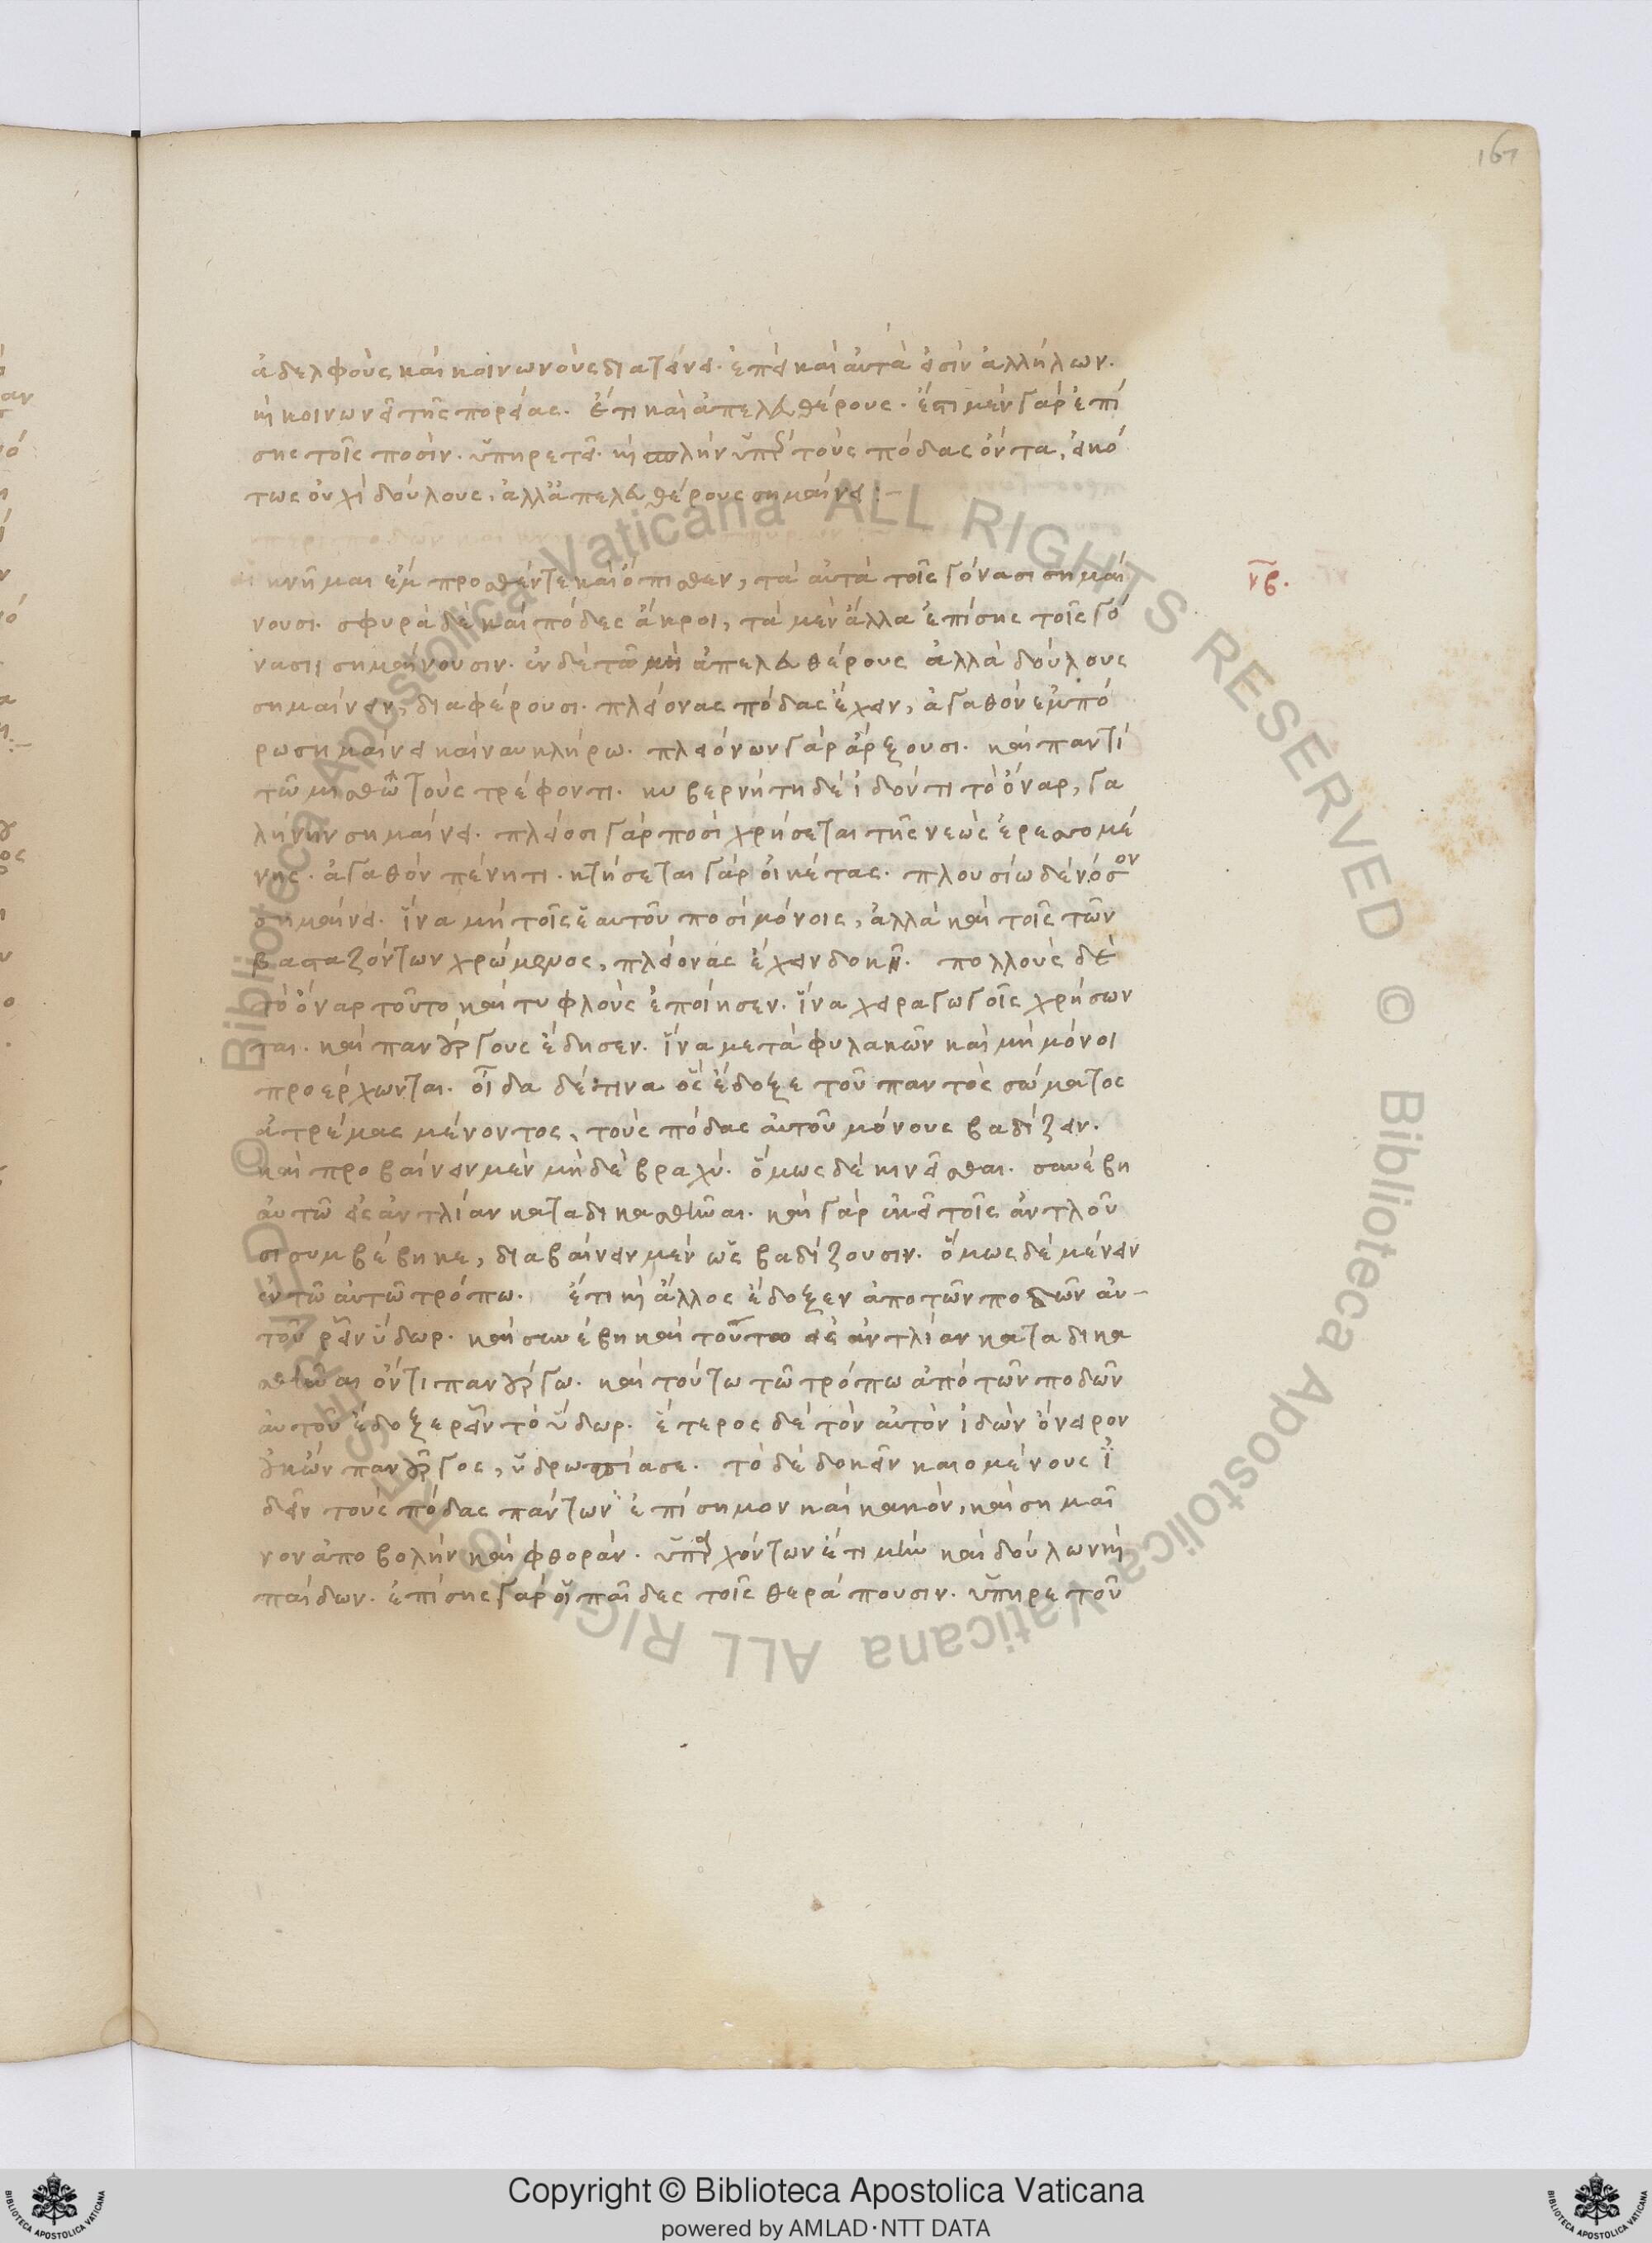 161
ἀδελφοὺς καὶ κοινωνοὺς διατείνει. ἐπεὶ καὶ αὐτὰ εἰσὶν ἀλλήλων.
κὴ κοινωνεῖ τῆς πορείας. ἔτι καὶ ἀπελευθέρους. ἔστι μὲν γὰρ ἐπί
σης τοῖς ποσὶν. ὑπηρετεῖ. κὴ πλὴν ὑπὲρ τοὺς πόδας ὄντα, εἰκό
τως οὐχὶ δούλους, ἀλλ' ἀπελευθέρους σημαίνει :-
κνῆμαι ἔμπροσθέν τε καὶ ὄπισθεν, τὰ αὐτὰ τοῖς γόνασι σημαί
νβ.
νουσι. σφυρὰ δὲ καὶ πόδες ἄκροι, τὰ μὲν ἄλλα ἐπίσης τοῖς γό
νασι σημαίνουσιν. ἐν δὲ τῶ μὴ ἀπελευθέρους ἀλλὰ δούλους
σημαίνειν, διαφέρουσι. πλείονας πόδας ἔχειν, ἀγαθὸν ἐμπό
ρω σημαίνει καὶ ναυκλήρω. πλειόνων γὰρ ἄρξουσι. καὶ παντὶ
τῶ μισθωτοὺς τρέφοντι. κυβερνήτη δὲ ἰδόντι τὸ ὄναρ, γα
λήνην σημαίνει. πλείοσι γὰρ ποσὶ χρήσεται τῆς νεὼς ἐρεσσομέ
νης. ἀγαθὸν πένητι. κτήσεται γὰρ οἰκέτας. πλουσίω δὲ νόσον
σημαίνει. ἵνα μὴ τοῖς ἑαυτοῦ ποσὶ μόνοις, ἀλλὰ καὶ τοῖς τῶν
βασταζόντων χρώμενος, πλείονας ἔχειν δοκῆ. πολλοὺς δὲ
τὸ ὄναρ τοῦτο καὶ τυφλοὺς ἐποίησεν. ἵνα χειραγωγοῖς χρήσων
ται. καὶ πανούργους ἔδησεν. ἵνα μετὰ φυλακῶν καὶ μὴ μόνοι
προέρχωνται. οἶδα δέ τινα ὃς ἔδοξε τοῦ παντὸς σώματος
ἀτρέμας μένοντος, τοὺς πόδας αὐτοῦ μόνους βαδίζειν.
καὶ προβαίνειν μὲν μὴ δὲ βραχύ. ὅμως δὲ κινεῖσθαι. συνέβη
αὐτῶ εἰς ἀντλίαν καταδικασθῆναι. καὶ γὰρ ἐκεῖ τοῖς ἀντλοῦ
σι συμβέβηκε, διαβαίνειν μὲν ὡς βαδίζουσιν. ὅμως δὲ μένειν
ἐν τῶ αὐτῶ τρόπω. ἔτι κὴ ἄλλος ἔδοξεν ἀπο τῶν ποδῶν αὐ-
τοῦ ῥεῖν ὕδωρ. καὶ συνέβη καὶ τοῦτω εἰς ἀντλίαν καταδικα
σθῆναι ὄντι πανούργω. καὶ τούτω τῶ τρόπω ἀπὸ τῶν ποδῶν
αὐτοῦ ἔδοξε ῥεῖν τὸ ὕδωρ. ἕτερος δὲ τὸν αὐτὸν ἰδὼν ὄνειρον
οὐκ ὢν πανοῦργος, ὑδρωπίασε. τὸ δὲ δοκεῖν καιομένους ἰ
δεῖν τοὺς πόδας πάντων ἐπίσημον καὶ κακόν, καὶ σημαῖ
νον ἀποβολὴν καὶ φθοράν. ὑπαρχόντων ἔτι μὴν καὶ δούλων κὴ
παίδων. ἐπίσης γὰρ οἱ παῖδες τοῖς θεράπουσιν. ὑπηρετοῦ
© Biblioteca Apostolica Vaticana ALL RIGHTS RESERVED © Biblioteca Apostolica Vaticana ALL RIGHTS RESERVED
Copyright © Biblioteca Apostolica Vaticana
powered by AMLAD·NTT DATA